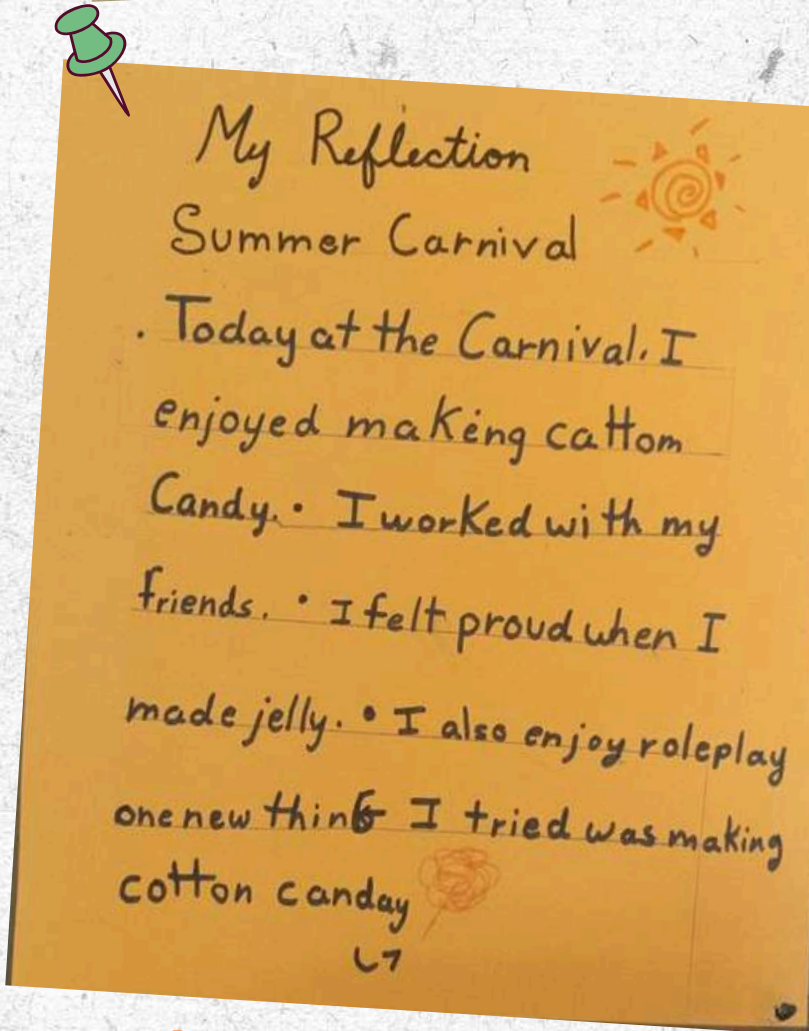 My Reflection
Summer Carnival
. Today at the Carnival. I
enjoyed making cattom
Candy. • I worked with my
friends. • I felt proud when I
made jelly. • I also enjoy roleplay
one new thing I tried was making
cotton canday